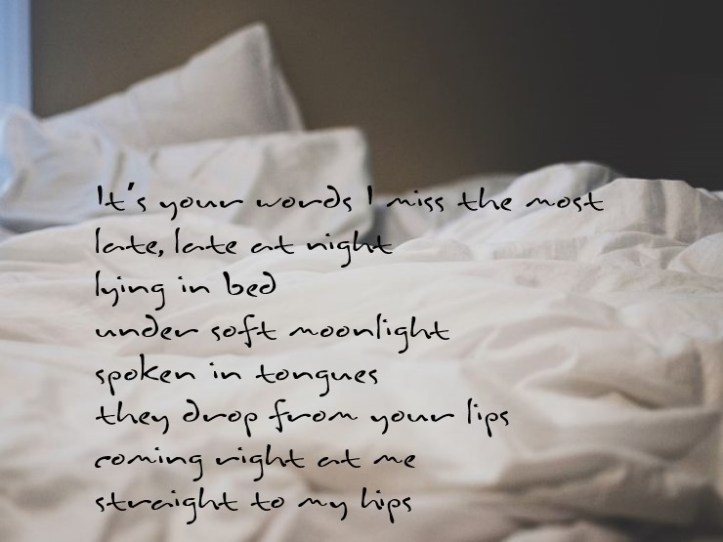 It's your words I miss the most
late, late at night
lying in bed
under soft moonlight
spoken in tongues
they drop from your lips
coming right at me
straight to my hips